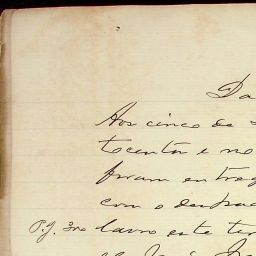 Da
Aos cinco de
tocentos e no
foram entreg
com o despac
P.J. 3no lavro este ter